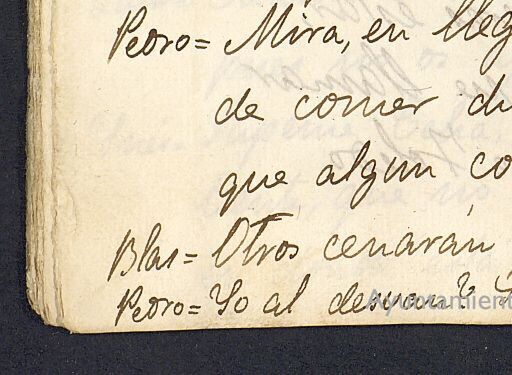 Pedro= Mira, en lleg
de comer du
que algun co
Blas= Otros cenarán
Pedro= Yo al desvan?
Ayuntamient